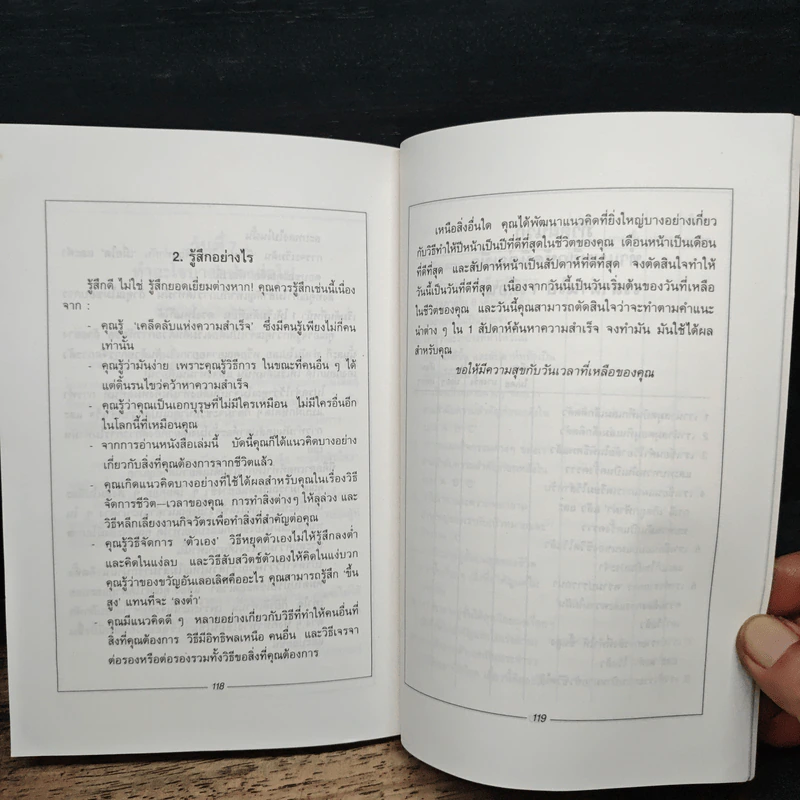 2. รู้สึกอย่างไร
รู้สึกดี ไม่ใช่ รู้สึกยอดเยี่ยมต่างหาก! คุณควรรู้สึกเช่นนี้เนื่อง
จาก :
- คุณรู้ ‘เคล็ดลับแห่งความสำเร็จ’ ซึ่งมีคนรู้เพียงไม่กี่คน
เท่านั้น
- คุณรู้ว่ามันง่าย เพราะคุณรู้วิธีการ ในขณะที่คนอื่น ๆ ได้
แต่ดิ้นรนไขว่คว้าหาความสำเร็จ
- คุณรู้ว่าคุณเป็นเอกบุรุษที่ไม่มีใครเหมือน ไม่มีใครอื่นอีก
ในโลกนี้ที่เหมือนคุณ
- จากการอ่านหนังสือเล่มนี้ บัดนี้คุณก็ได้แนวคิดบางอย่าง
เกี่ยวกับสิ่งที่คุณต้องการจากชีวิตแล้ว
- คุณเกิดแนวคิดบางอย่างที่ใช้ได้ผลสำหรับคุณในเรื่องวิธี
จัดการชีวิต—เวลาของคุณ การทำสิ่งต่างๆ ให้ลุล่วง และ
วิธีหลีกเลี่ยงงานกิจวัตรเพื่อทำสิ่งที่สำคัญต่อคุณ
- คุณรู้วิธีจัดการ ‘ตัวเอง’ วิธีหยุดตัวเองไม่ให้รู้สึกลงต่ำ
และคิดในแง่ลบ และวิธีสับสวิตช์ตัวเองให้คิดในแง่บวก
คุณรู้ว่าของขวัญอันเลอเลิศคืออะไร คุณสามารถรู้สึก ‘ขึ้น
สูง’ แทนที่จะ ‘ลงต่ำ’
- คุณมีแนวคิดดี ๆ หลายอย่างเกี่ยวกับวิธีที่ทำให้คนอื่นที่
สิ่งที่คุณต้องการ วิธีมีอิทธิพลเหนือ คนอื่น และวิธีเจรจา
ต่อรองหรือต่อรองรวมทั้งวิธีขอสิ่งที่คุณต้องการ
118
เหนือสิ่งอื่นใด คุณได้พัฒนาแนวคิดที่ยิ่งใหญ่บางอย่างเกี่ยว
กับวิธีทำให้ปีหน้าเป็นปีที่ดีที่สุดในชีวิตของคุณ เดือนหน้าเป็นเดือน
ที่ดีที่สุด และสัปดาห์หน้าเป็นสัปดาห์ที่ดีที่สุด จงตัดสินใจทำให้
วันนี้เป็นวันที่ดีที่สุด เนื่องจากวันนี้เป็นวันเริ่มต้นของวันที่เหลือ
ในชีวิตของคุณ และวันนี้คุณสามารถตัดสินใจว่าจะทำตามคำแนะ
นำต่าง ๆ ใน 1 สัปดาห์ค้นหาความสำเร็จ จงทำมัน มันใช้ได้ผล
สำหรับคุณ
ขอให้มีความสุขกับวันเวลาที่เหลือของคุณ
119